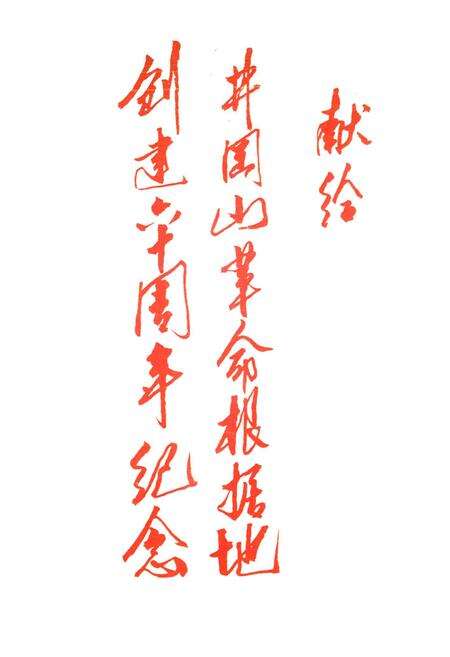 献给
井冈山革命根据地
创建六十周年纪念